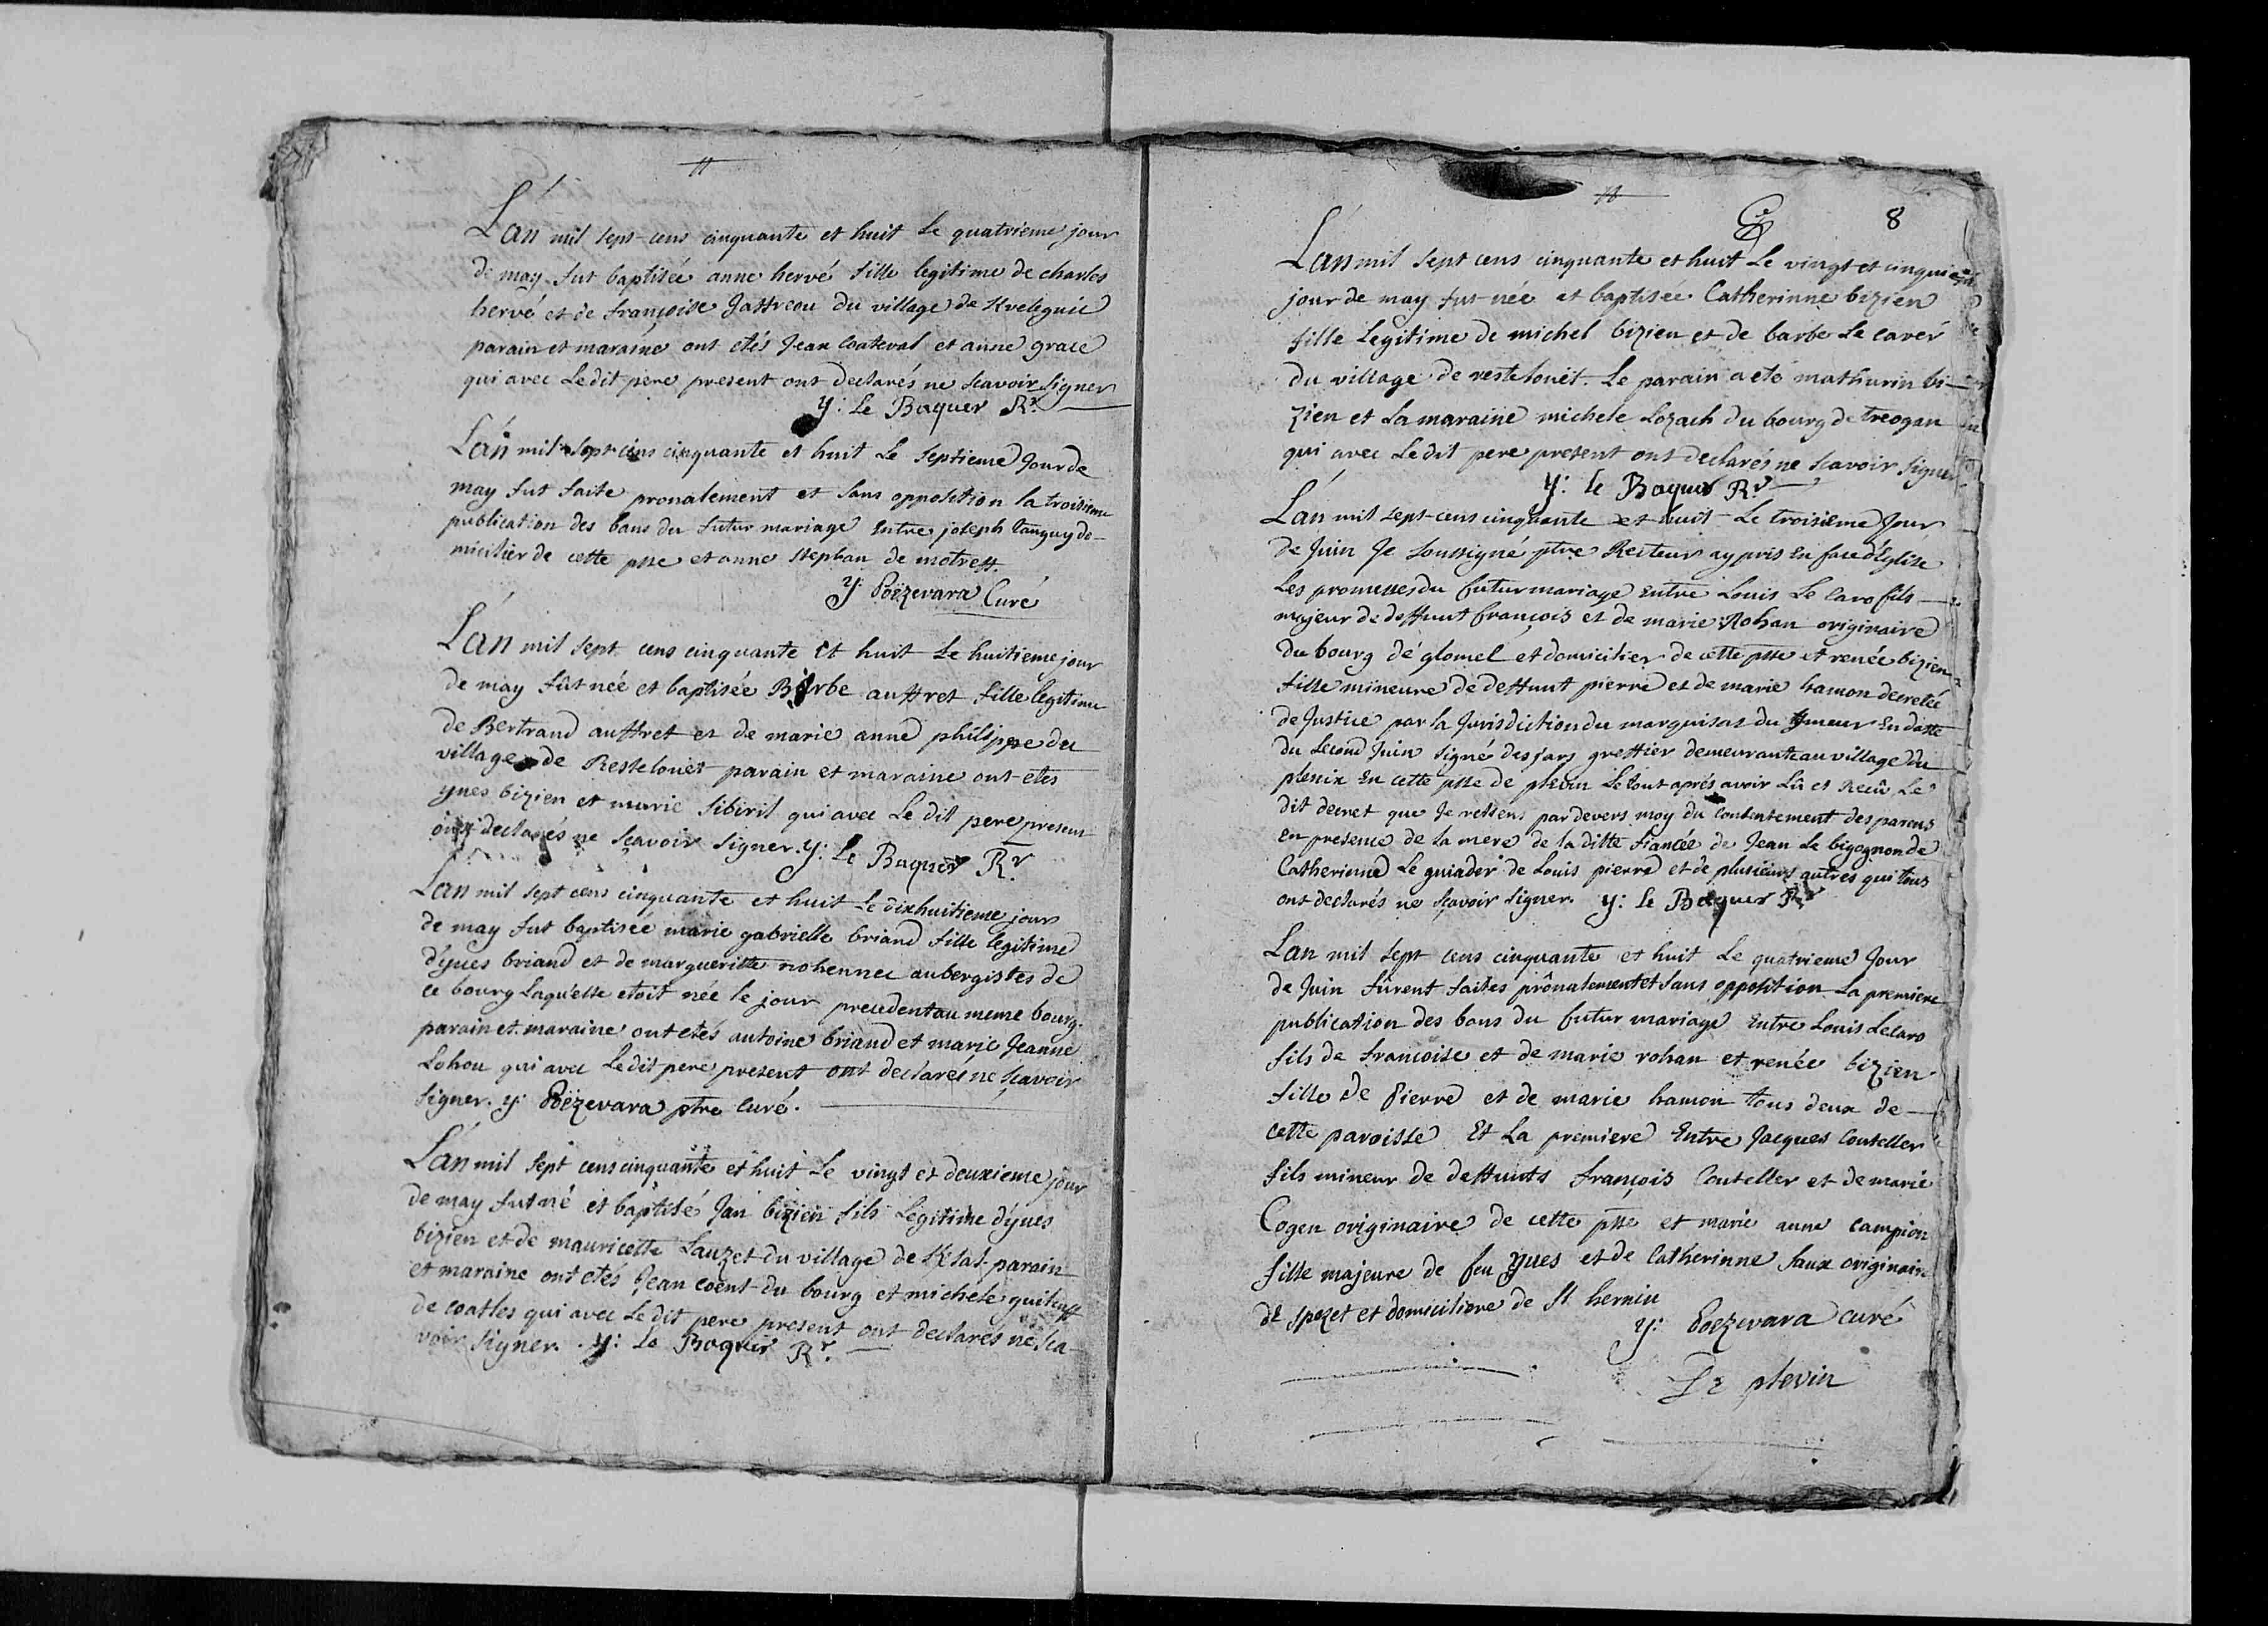 L'an mil sept cens cinquante et huit Le quatrieme jour
de may fut baptisée anne hervé fille legitime de charles
hervé et de françoise Jaffreou du village de Kveleguic
parain et maraine ont etés Jean Coateval et anne grace
qui avec Ledit pere present ont declarés ne scavoir signer
y: Le Baquer Rr.
L'an mil sept cens cinquante et huit Le septieme Jour de
may fut faite pronalement et sans opposition la troisieme
publication des bans du futur mariage Entre joseph tanguy do-
micilier de cette psse et anne stephan de motreff.
y: Poëzevara Curé
L'an mil sept cens cinquante et huit Le huitieme jour
de may fût née et baptisée Barbe auffret fille legitime
de Bertrand auffret et de marie anne philippe du
village de Restelouet parain et maraine ont etes
yves bizien et marie sibiril qui avec Le dit pere present
ont declarés ne sçavoir signer. y: Le Baquer Rr.
L'an mil sept cens cinquante et huit Le dixhuitieme jour
de may fut baptisée marie gabrielle briand fille legitime
d'yves briand et de margueritte rohennec aubergistes de
ce bourg Laqu'elle etoit née le jour precedent au meme bourg.
parain et maraine ont etés antoine briand et marie Jeanne
Lohou qui avec Ledit pere present ont declarés ne sçavoir
signer. y: Poëzevara ptre Curé.
L'an mil sept cens cinquante et huit Le vingt et deuxieme jour
de may fut né et baptisé Jan bizien fils Legitime d'yves
bizien et de mauricette Lauzet du village de Klas. parain
et maraine ont etés Jean coent du bourg et michele
de coatles qui avec Le dit pere present ont declarés ne sça-
voir signer. y: Le Baquer Rr.
8
L'an mil sept cens cinquante et huit Le vingt et cinquieme
jour de may fut née et baptisée Catherinne bizien
fille Legitime de michel bizien et de barbe Le caver
du village de restelouèt. Le parain a eté mathurin bi-
zien et La maraine michele Lozach du bourg de treogan
qui avec Ledit pere present ont declarés ne scavoir signer
y: le Baquer Rr
L'an mil sept cens cinquante et huit Le troisieme Jour
de Juin Je soussigné ptre Recteur ay pris En face d'Eglise
Les promesses du futur mariage Entre Louis Le Caro fils
majeur de deffunt françois et de marie Rohan originaire
du bourg de glomel et domicilier de cette psse et renée bizien
fille mineure de deffunt pierre et de marie hamon decretée
de Justice par la Jurisdiction du marquisat du tymeur En datte
du second Juin signé desjars greffier demeurante au village du
plenix En cette psse de plevin Le tout aprés avoir Lû et Recû Le
dit decret que Je retiens par devers moy du Consentement des parens
en presence de la mere de laditte fiancée de Jean Le bigognon de
Catherinne Le guiader de Louis pierre et de plusieurs autres qui tous
ont declarés ne sçavoir signer. y: Le Baquer Rr
L'an mil sept cens cinquante et huit Le quatrieme Jour
de Juin fûrent faites prônalement et sans opposition La premiere
publication des bans du futur mariage Entre Louis Lecaro
fils de francoise et de marie rohan et renée bizien
fille de Pierre et de marie hamon tous deux de
cette paroisse Et La premiere Entre Jacques Couteller
fils mineur de deffunts françois Couteller et de marie
Cogen originaire de cette psse et marie anne campion
fille majeure de feu yves et de Catherinne faux originaire
de spezet et domiciliere de St hernin
y: Poëzevara curé
De plevin